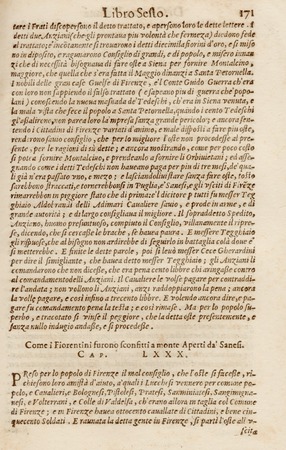 Libro Sesto. 171
tere i Frati discopersono il detto trattato, e apersono loro le dette lettere. I
detti due, Anziani (che gli prontava piu volontà che fermezza) dicendo fede
al trattato; e incontanente si trovarono i detti diecimila fiorini d'oro, e si miso-
no in diposito, e ragunarono Consiglio di grandi, e di popolo, e misero innan-
zi che di necessità bisognava di fare oste a Siena per fornire Montalcino,
maggiore, che quella che s'era fatta il Maggio dinanzi a Santa Petornella.
I nobili delle gran case Guelfe di Firenze, e'l Conte Guido Guerra ch'era
con loro non sappiendo il falso trattato, e sapeano piu di guerra che' popo-
lani) conoscendo la nuova masnada de' Tedeschi, ch'era in Siena venuta, e
la mala vista che fece il popolo a Santa Petornella, quando i cento Tedeschi
gl'assalirono, non parea loro la impresa sanza grande pericolo; e ancora sen-
tendo i Cittadini di Firenze variati d'animo, e male disposti a fare piu oste,
rendero no savio consiglio, che per lo migliore l'oste non procedesse al pre-
sente, per le ragioni di sù dette; e ancora mostrando, come per poco costo
si potea fornire Montalcino, e prendeanlo a fornire li Orbivietani; ed asse-
gnando come i detti Tedeschi non haveano paga per piu di tre mesi, de' qua-
li già n'era passato uno, e mezo; e lasciandoli stare sanza fare oste, tosto
sarebbono straccati, e tornerebbonsi in Puglia, e' Sanesi, e gli usciti di Firenze
rimarrebbon in peggiore stato che di prima: e'l dicitore p tutti fu messer Teg-
ghiaio Aldobrandi delli Adimari Cavaliere savio, e prode in arme, e di
grande autorità; e di largo consigliava il migliore. Il sopraddetto Spedito,
Anziano, homo presuntuoso, compiuto il Consiglio, villanamente il ripre-
se, dicendo, che si cercasse le brache, se haveva paura. E messer Tegghiaio
gli rispuose, che al bisogno non ardirebbe di seguirlo in battaglia colà dove e'
si metterebbe. E finite le dette parole, poi si levò messer Cece Gherardini
per dire il simigliante, che haveva detto messer Tegghiaio; gli Anziani li
comandarono che non dicesse, che era pena cento libbre chi aringasse contro
al comandamento delli Anziani. Il Cavaliere le volle pagare per contradia-
re l'andata; non vollono li Anziani, anzi raddoppiarono la pena; ancora
la volle pagare, e così infino a trecento libbre. E volendo ancora dire, e pa-
gare fu comandamento pena la testa; e così rimase. Ma per lo popolo su-
perbo, e trascutato si vinse il peggiore, che la detta oste presentemente, e
sanza nullo indugio andasse, e si procedesse.
Come i Fiorentini furono sconfitti a monte Aperti da' Sanesi.
CAP. LXXX.
PReso per lo popolo di Firenze il mal consiglio, che l'oste si facesse, ri-
chiesono loro amistà d'aiuto, a' quali i Lucchesi vennero per comune popo-
lo, e Cavalieri, e Bolognesi, Pistolesi, Pratesi, Samminiatesi, Sangimigna-
nesi, e Volterrani, e Colle di Valdelsa, ch'erano allora in taglia col Comune
di Firenze; e in Firenze haveva ottocento cavallate di Cittadini, e bene cin-
quecento Soldati. E raunata la detta gente in Firenze, si partì l'oste all'u-
scita